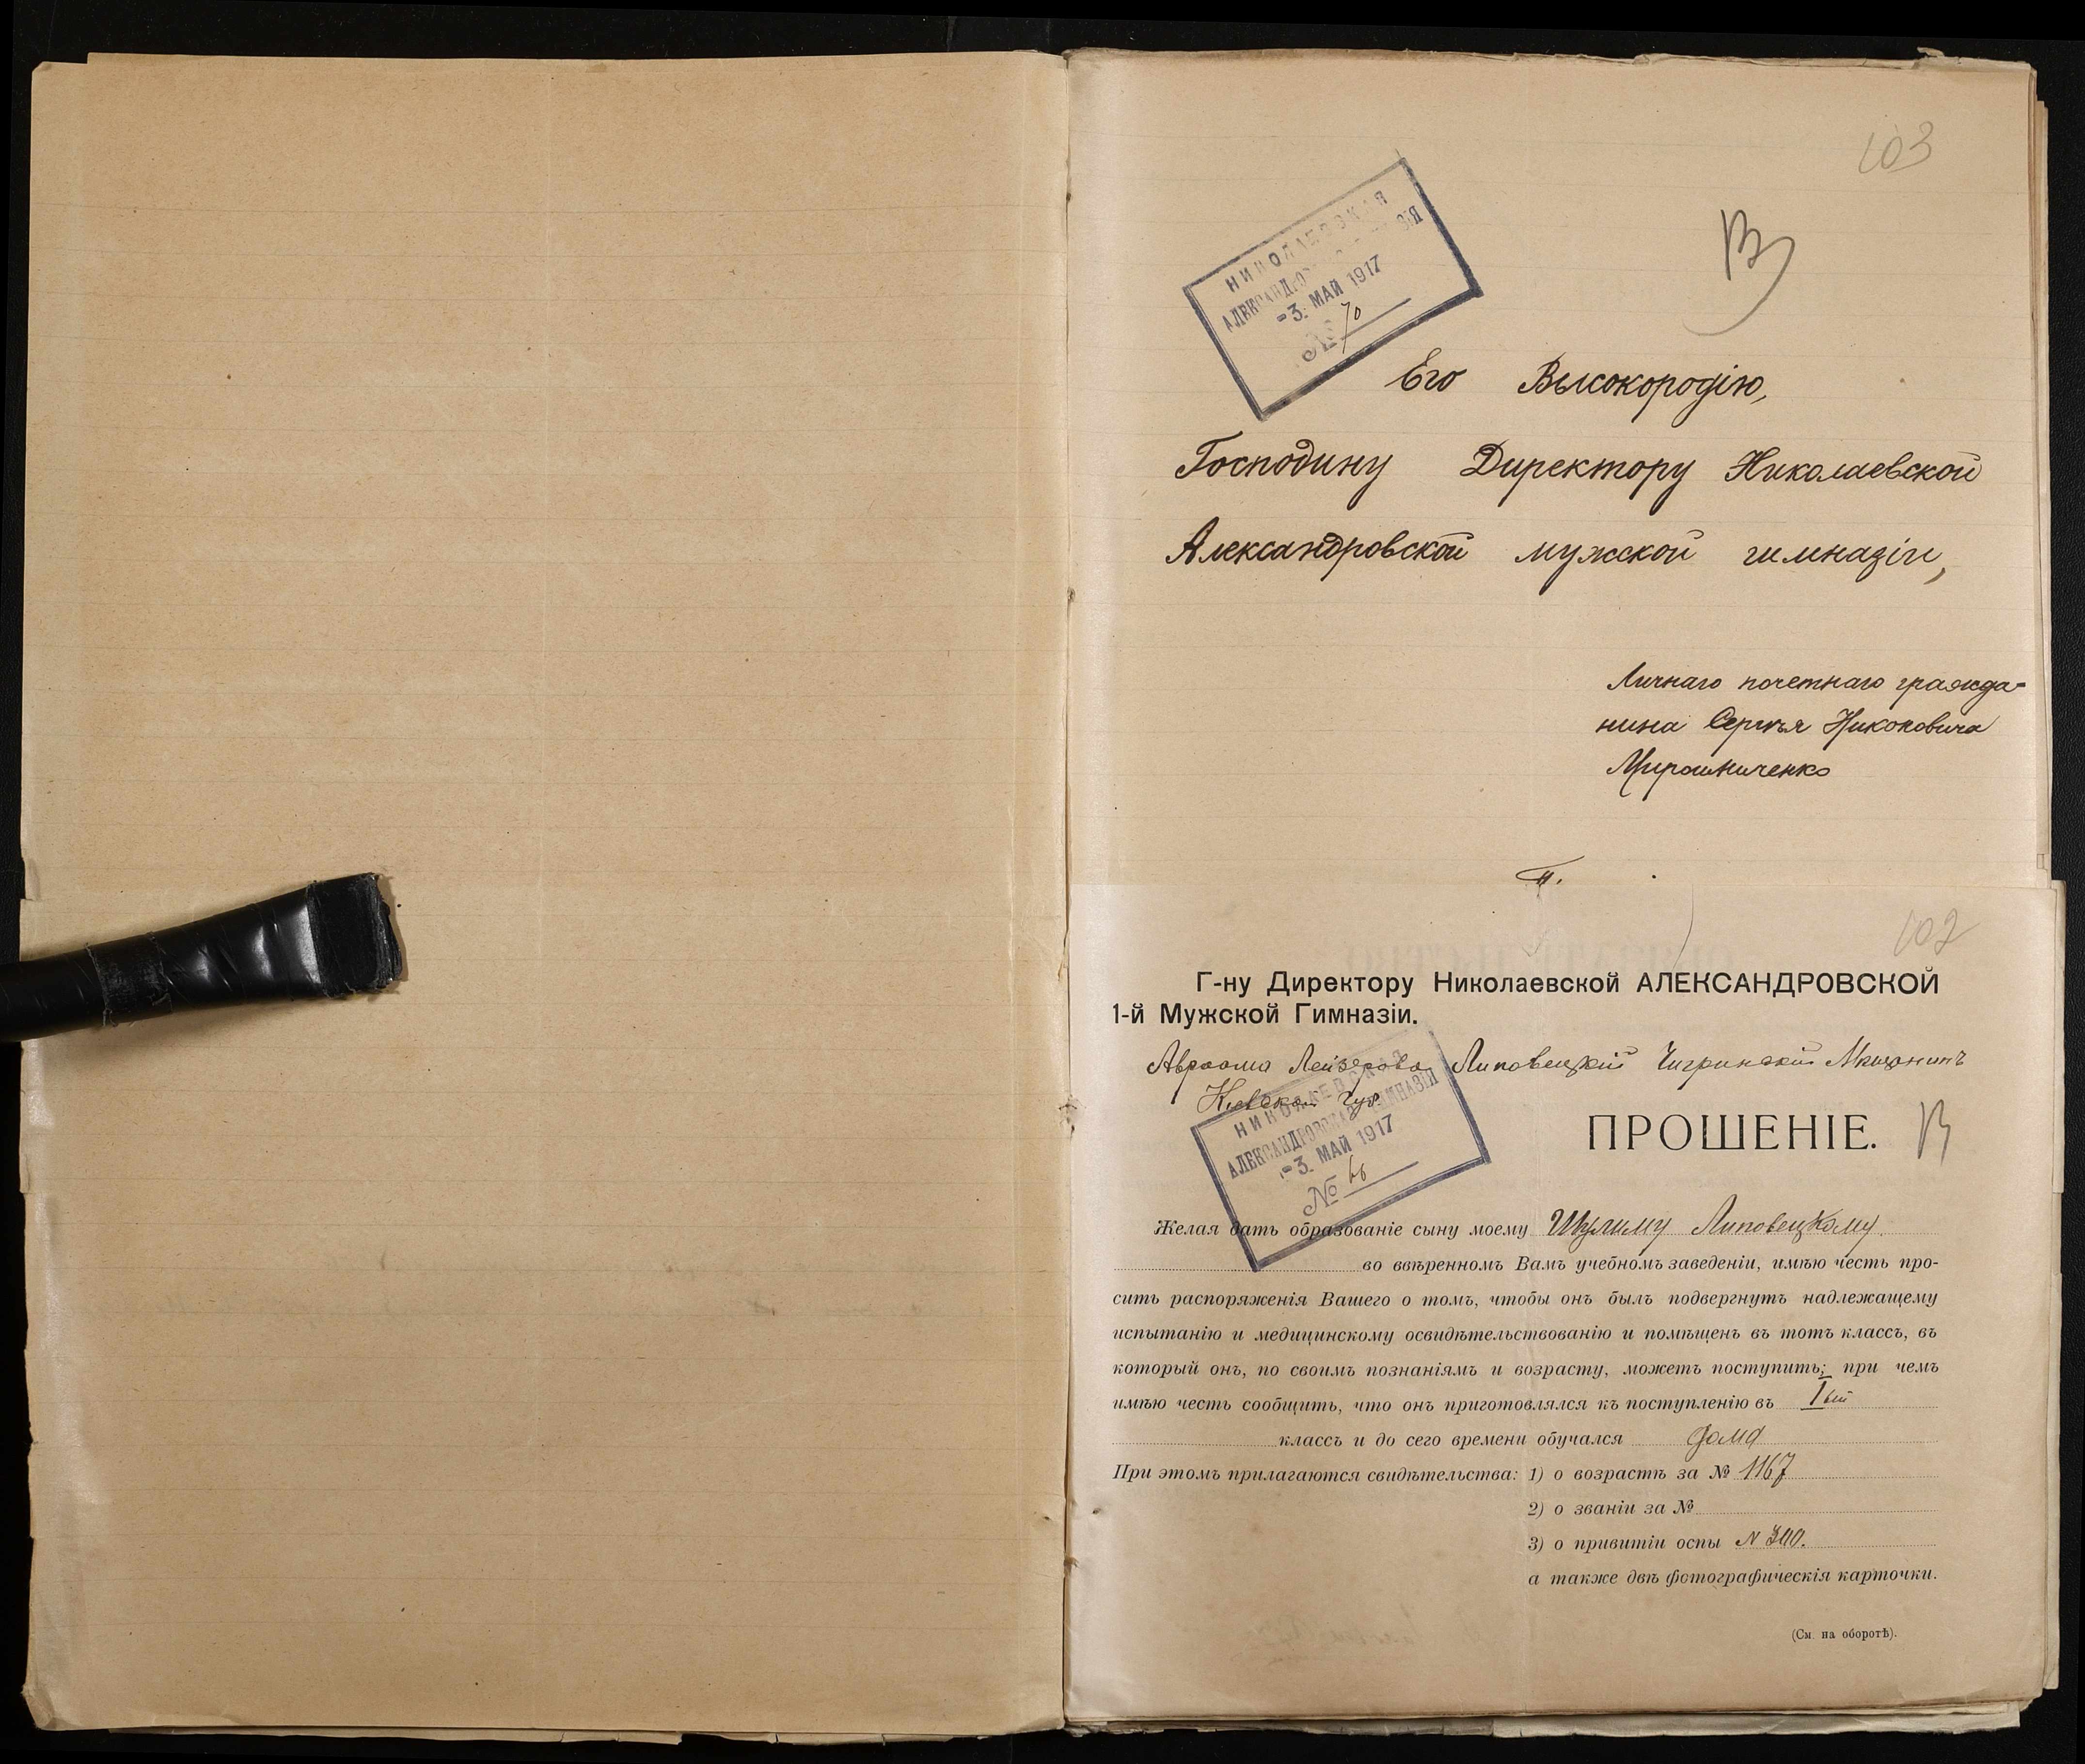 103
В
НИКОЛАЕВСКАЯ
-3. МАЙ 1917
№ 70
Его Высокородію,
Господину Директору Николаевской
Александровской мужской гимназіи,
Личнаго почетнаго гражда-
нина Сергѣя Никоновича
Мирошниченко
102
Г-ну Директору Николаевской АЛЕКСАНДРОВСКОЙ
1-й Мужской Гимназіи.
Авраама Лейзерова Липовецкій Чигринскій Мѣщанинъ
Кіевской Губ
НИКОЛАЕВСКАЯ
АЛЕКСАНДРОВСКАЯ ГИМНАЗІЯ
-3. МАЙ 1917
№ 66
ПРОШЕНІЕ. В
Желая дать образованіе сыну моему Шулиму Липовецкому.
во ввѣренномъ Вамъ учебномъ заведеніи, имѣю честь про-
сить распоряженія Вашего о томъ, чтобы онъ былъ подвергнутъ надлежащему
испытанію и медицинскому освидѣтельствованію и помѣщенъ въ тотъ классъ, въ
который онъ, по своимъ познаніямъ и возрасту, можетъ поступить; при чемъ
имѣю честь сообщить, что онъ приготовлялся къ поступленію въ Iый
классъ и до сего времени обучался дома
При этомъ прилагаются свидѣтельства: 1) о возрастѣ за № 1167
2) о званіи за №
3) о привитіи оспы N
а также двѣ фотографическія карточки.
(См. на оборотѣ).